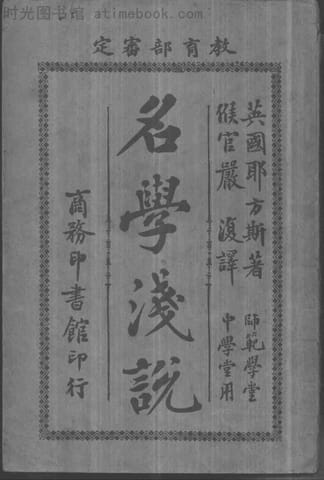 时光图书馆 www.atimebook.com
定審部育教
英國耶方斯著
師範學堂
候官嚴復譯
中學堂用
名學淺說
商務印書館印行